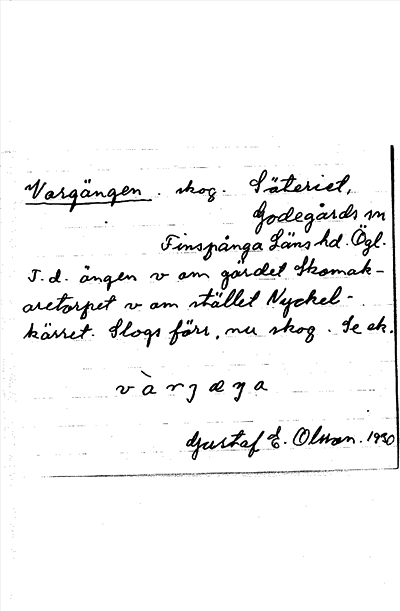 Vargängen. skog. Säteriet,
Godegårds sn
Finspånga Läns hd. Ögl.
F.d. ängen v om gärdet Skomak-
aretorpet v om stället Nyckel-
kärret. Slogs förr, nu skog. Se ek.
vàrjæŋa
Gustaf E. Olsson. 1930